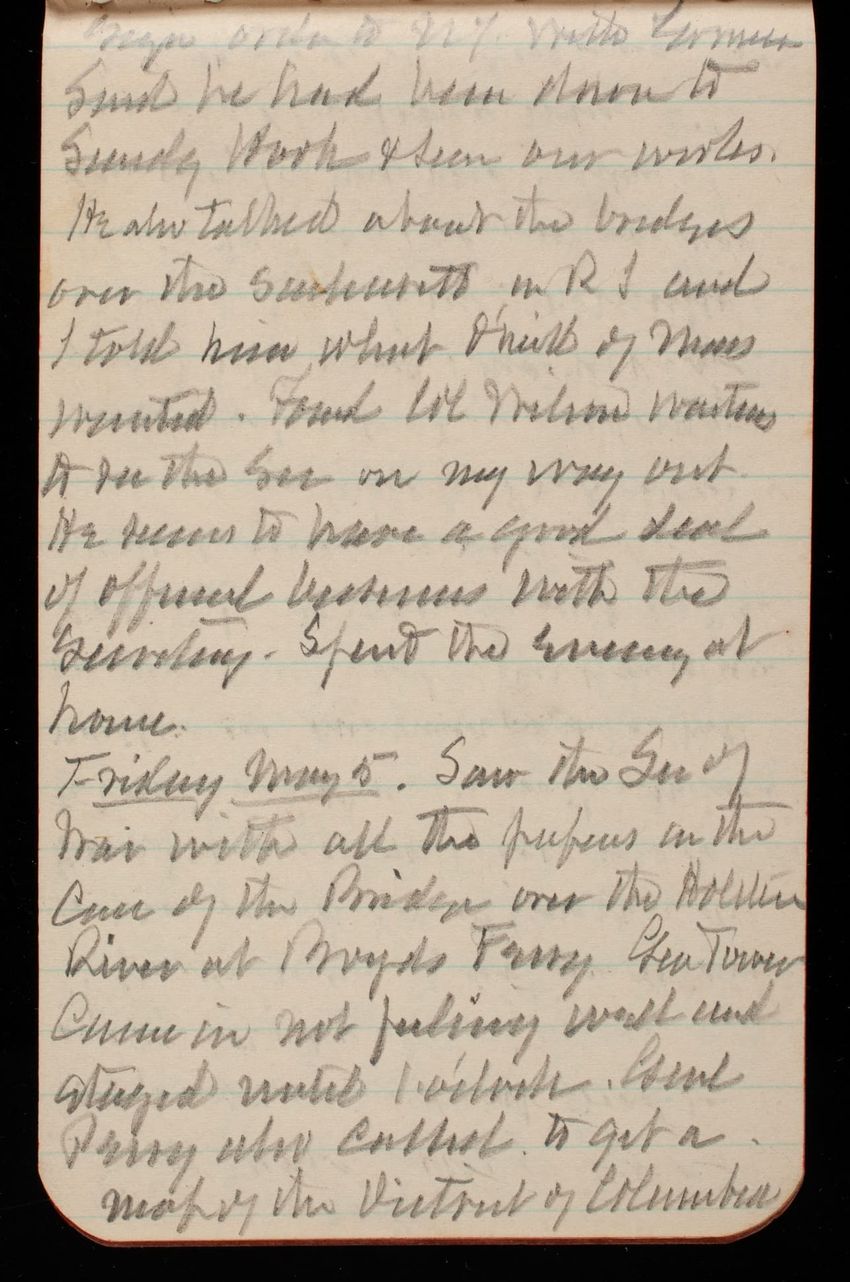 order to N.Y.
Said he had been down to
Sandy Hook & seen our works.
He also talked about the bridges
over the in R I and
I told him what of Mass
wanted. Found Col Wilson waiting
to see the Sec on my way out
He seems to have a good deal
of official business with the
Secretary. Spent the evening at
home.
Friday May 5. Saw the Sec of
War with all the papers in the
Case of the Bridge over the Holston
River at Boyds Ferry Gen Tower
Came in not feeling well and
stayed until 1 o'clock. Genl
Perry also called to get a
map of the District of Columbia